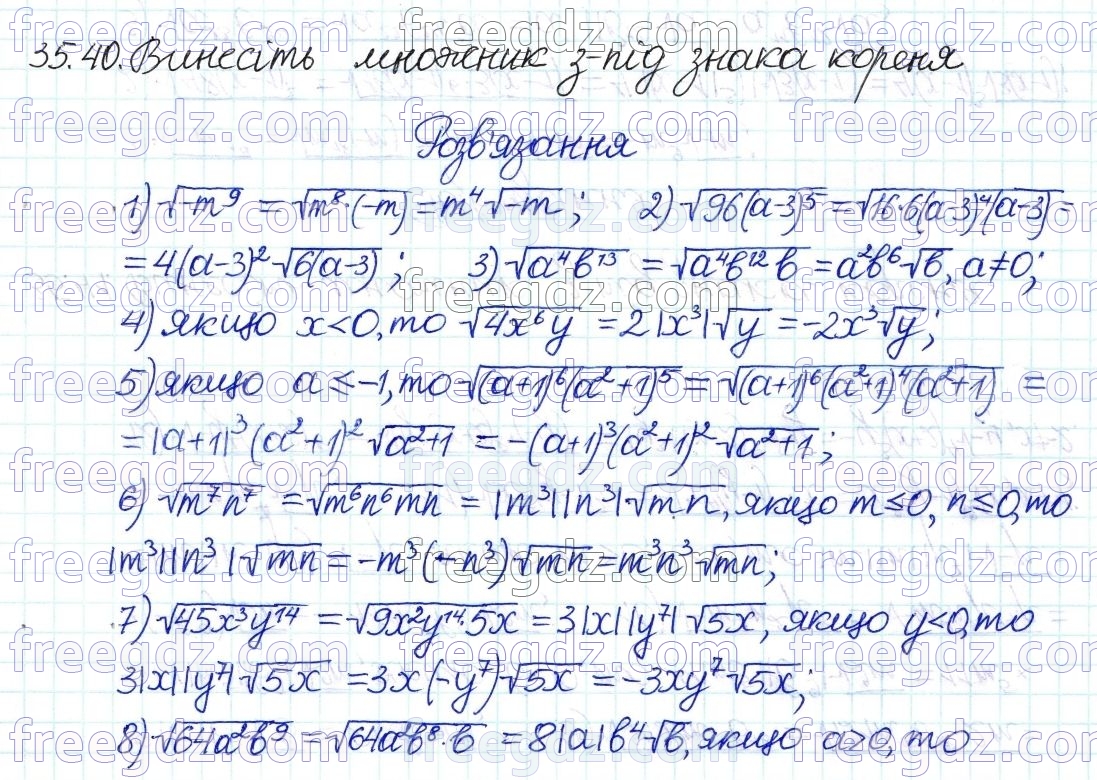 35.40. Винесіть множник з-під знака кореня
Розв'язання
1) √-m⁹ = √m⁸·(-m) = m⁴√-m ; 2) √96(a-3)⁵ = √16·6(a-3)⁴(a-3) =
= 4(a-3)²√6(a-3) ; 3) √a⁴b¹³ = √a⁴b¹²b = a²b⁶√b, a≠0;
4) якщо x<0, то √4x⁶y = 2|x³|√y = -2x³√y;
5) якщо a ≤ -1, то √(a+1)⁶(a²+1)⁵ = √(a+1)⁶(a²+1)⁴(a²+1) =
= |a+1|³(a²+1)²√a²+1 = -(a+1)³(a²+1)²√a²+1;
6) √m⁷n⁷ = √m⁶n⁶mn = |m³||n³|√mn, якщо m≤0, n≤0, то
|m³||n³|√mn = -m³(-n³)√mn = m³n³√mn;
7) √45x³y¹⁴ = √9x²y¹⁴·5x = 3|x||y⁷|√5x, якщо y<0, то
3|x||y⁷|√5x = 3x(-y⁷)√5x = -3xy⁷√5x;
8) √64a²b⁹ = √64a²b⁸·b = 8|a|b⁴√b, якщо a>0, то
freegdz.com